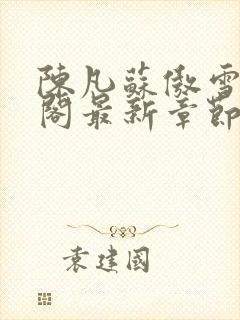 陳凡蘇傲雪
閣最新章節
袁建國